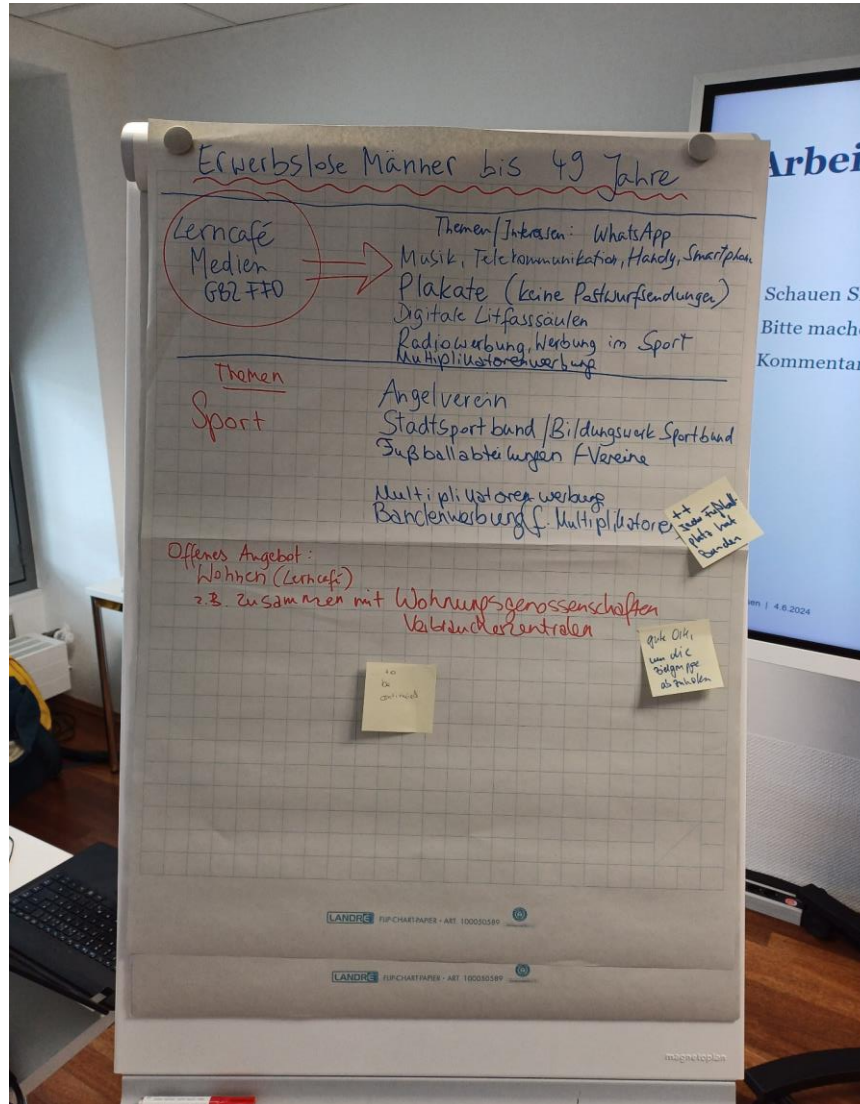 Erwerbslose Männer bis 49 Jahre
Lerncafé
Medien
GBZ FFO
Themen/Interessen: WhatsApp
Musik, Telekommunikation, Handy, Smartphon
Plakate (keine Postwurfsendungen)
Digitale Litfasssäulen
Radiowerbung, Werbung im Sport
Multiplikatorenwerbung
Themen
Sport
Angelverein
Stadtsportbund/Bildungswerk Sportbund
Fußballabteilungen f Vereine
Multiplikatorenwerbung
Bandenwerbung f. Multiplikatoren
++
jeder Fußball
platz hat
Banden
Offenes Angebot:
Wohnen (Lerncafé)
z.B. zusammen mit Wohnungsgenossenschaften
Verbraucherzentralen
gute Orte,
um die
Zielgruppe
abzuholen
to
be
continued
LANDRÉ FLIP-CHART-PAPIER - ART. 100050589
LANDRÉ FLIP-CHART-PAPIER - ART. 100050589
magnetoplan
Arbei
Schauen S
Bitte mach
Kommentar
en | 4.6.2024